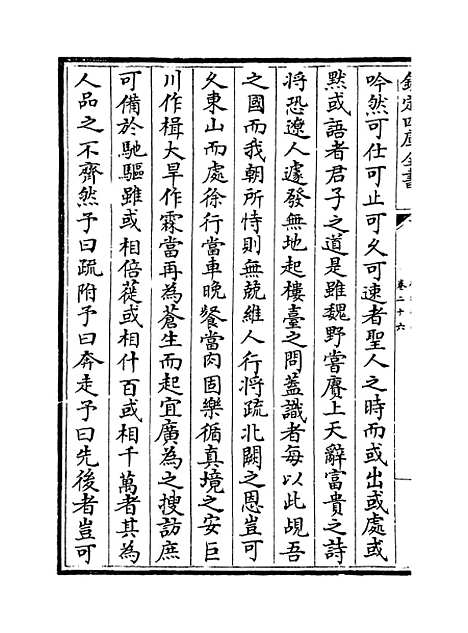 欽定四庫全書
卷二十六
吟然可仕可止可久可速者聖人之時而或出或處或
黙或語者君子之道是雖魏野嘗賡上天辭富貴之詩
將恐遼人遽發無地起樓臺之問蓋識者每以此覘吾
之國而我朝所恃則無兢維人行將疏北闕之恩豈可
久東山而處徐行當車晚餐當肉固樂循真境之安巨
川作楫大旱作霖當再為蒼生而起宜廣為之搜訪庶
可備於馳驅雖或相倍蓰或相什百或相千萬者其為
人品之不齊然予曰疏附予曰奔走予曰先後者豈可